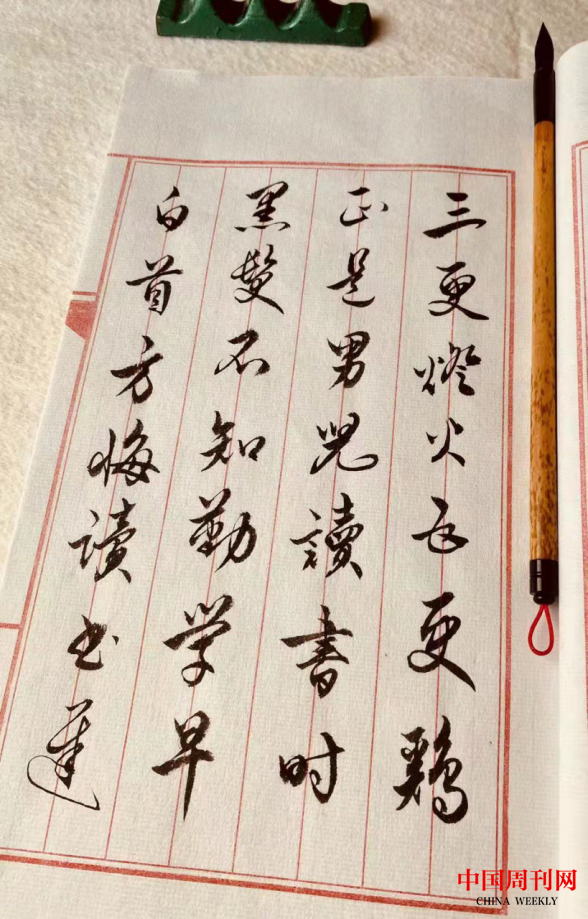 三更燈火五更鷄
正是男兒讀書时
黑髮不知勤学早
白首方悔读书遲
中国周刊网
CHINA WEEKLY